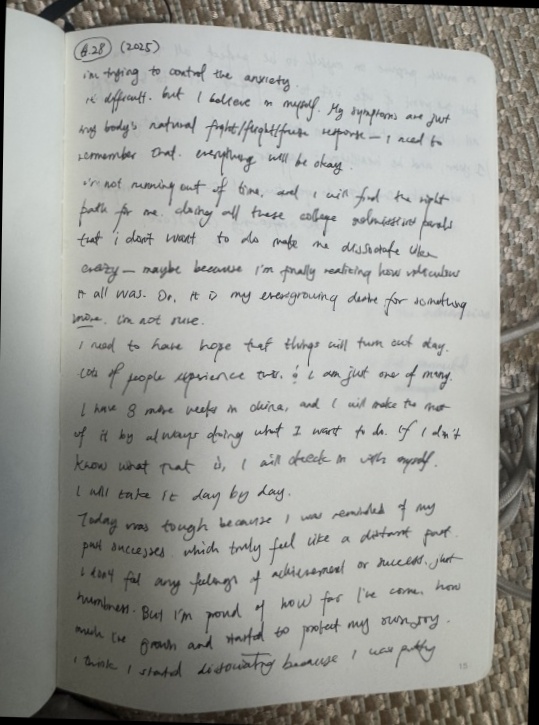 6.28 (2025)
i'm trying to control the anxiety.
it's difficult. but I believe in myself. My symptoms are just
my body's natural fight/flight/freeze response — I need to
remember that. everything will be okay.
i'm not running out of time, and I will find the right
path for me. doing all these college admissions panels
that i don't want to do make me dissociate like
crazy — maybe because I'm finally realizing how ridiculous
it all was. Or, it is my evergrowing desire for something
more. i'm not sure.
I need to have hope that things will turn out okay.
Lots of people experience this. I am just one of many.
I have 8 more weeks in China, and I will make the most
of it by always doing what I want to do. If I don't
know what that is, I will check in with myself.
I will take it day by day.
Today was tough because I was reminded of my
past successes. which truly feel like a distant past.
I don't feel any feelings of achievement or success. just
numbness. But I'm proud of how far I've come, how
much I've grown and started to protect my own joy.
I think I started dissociating because I was putting